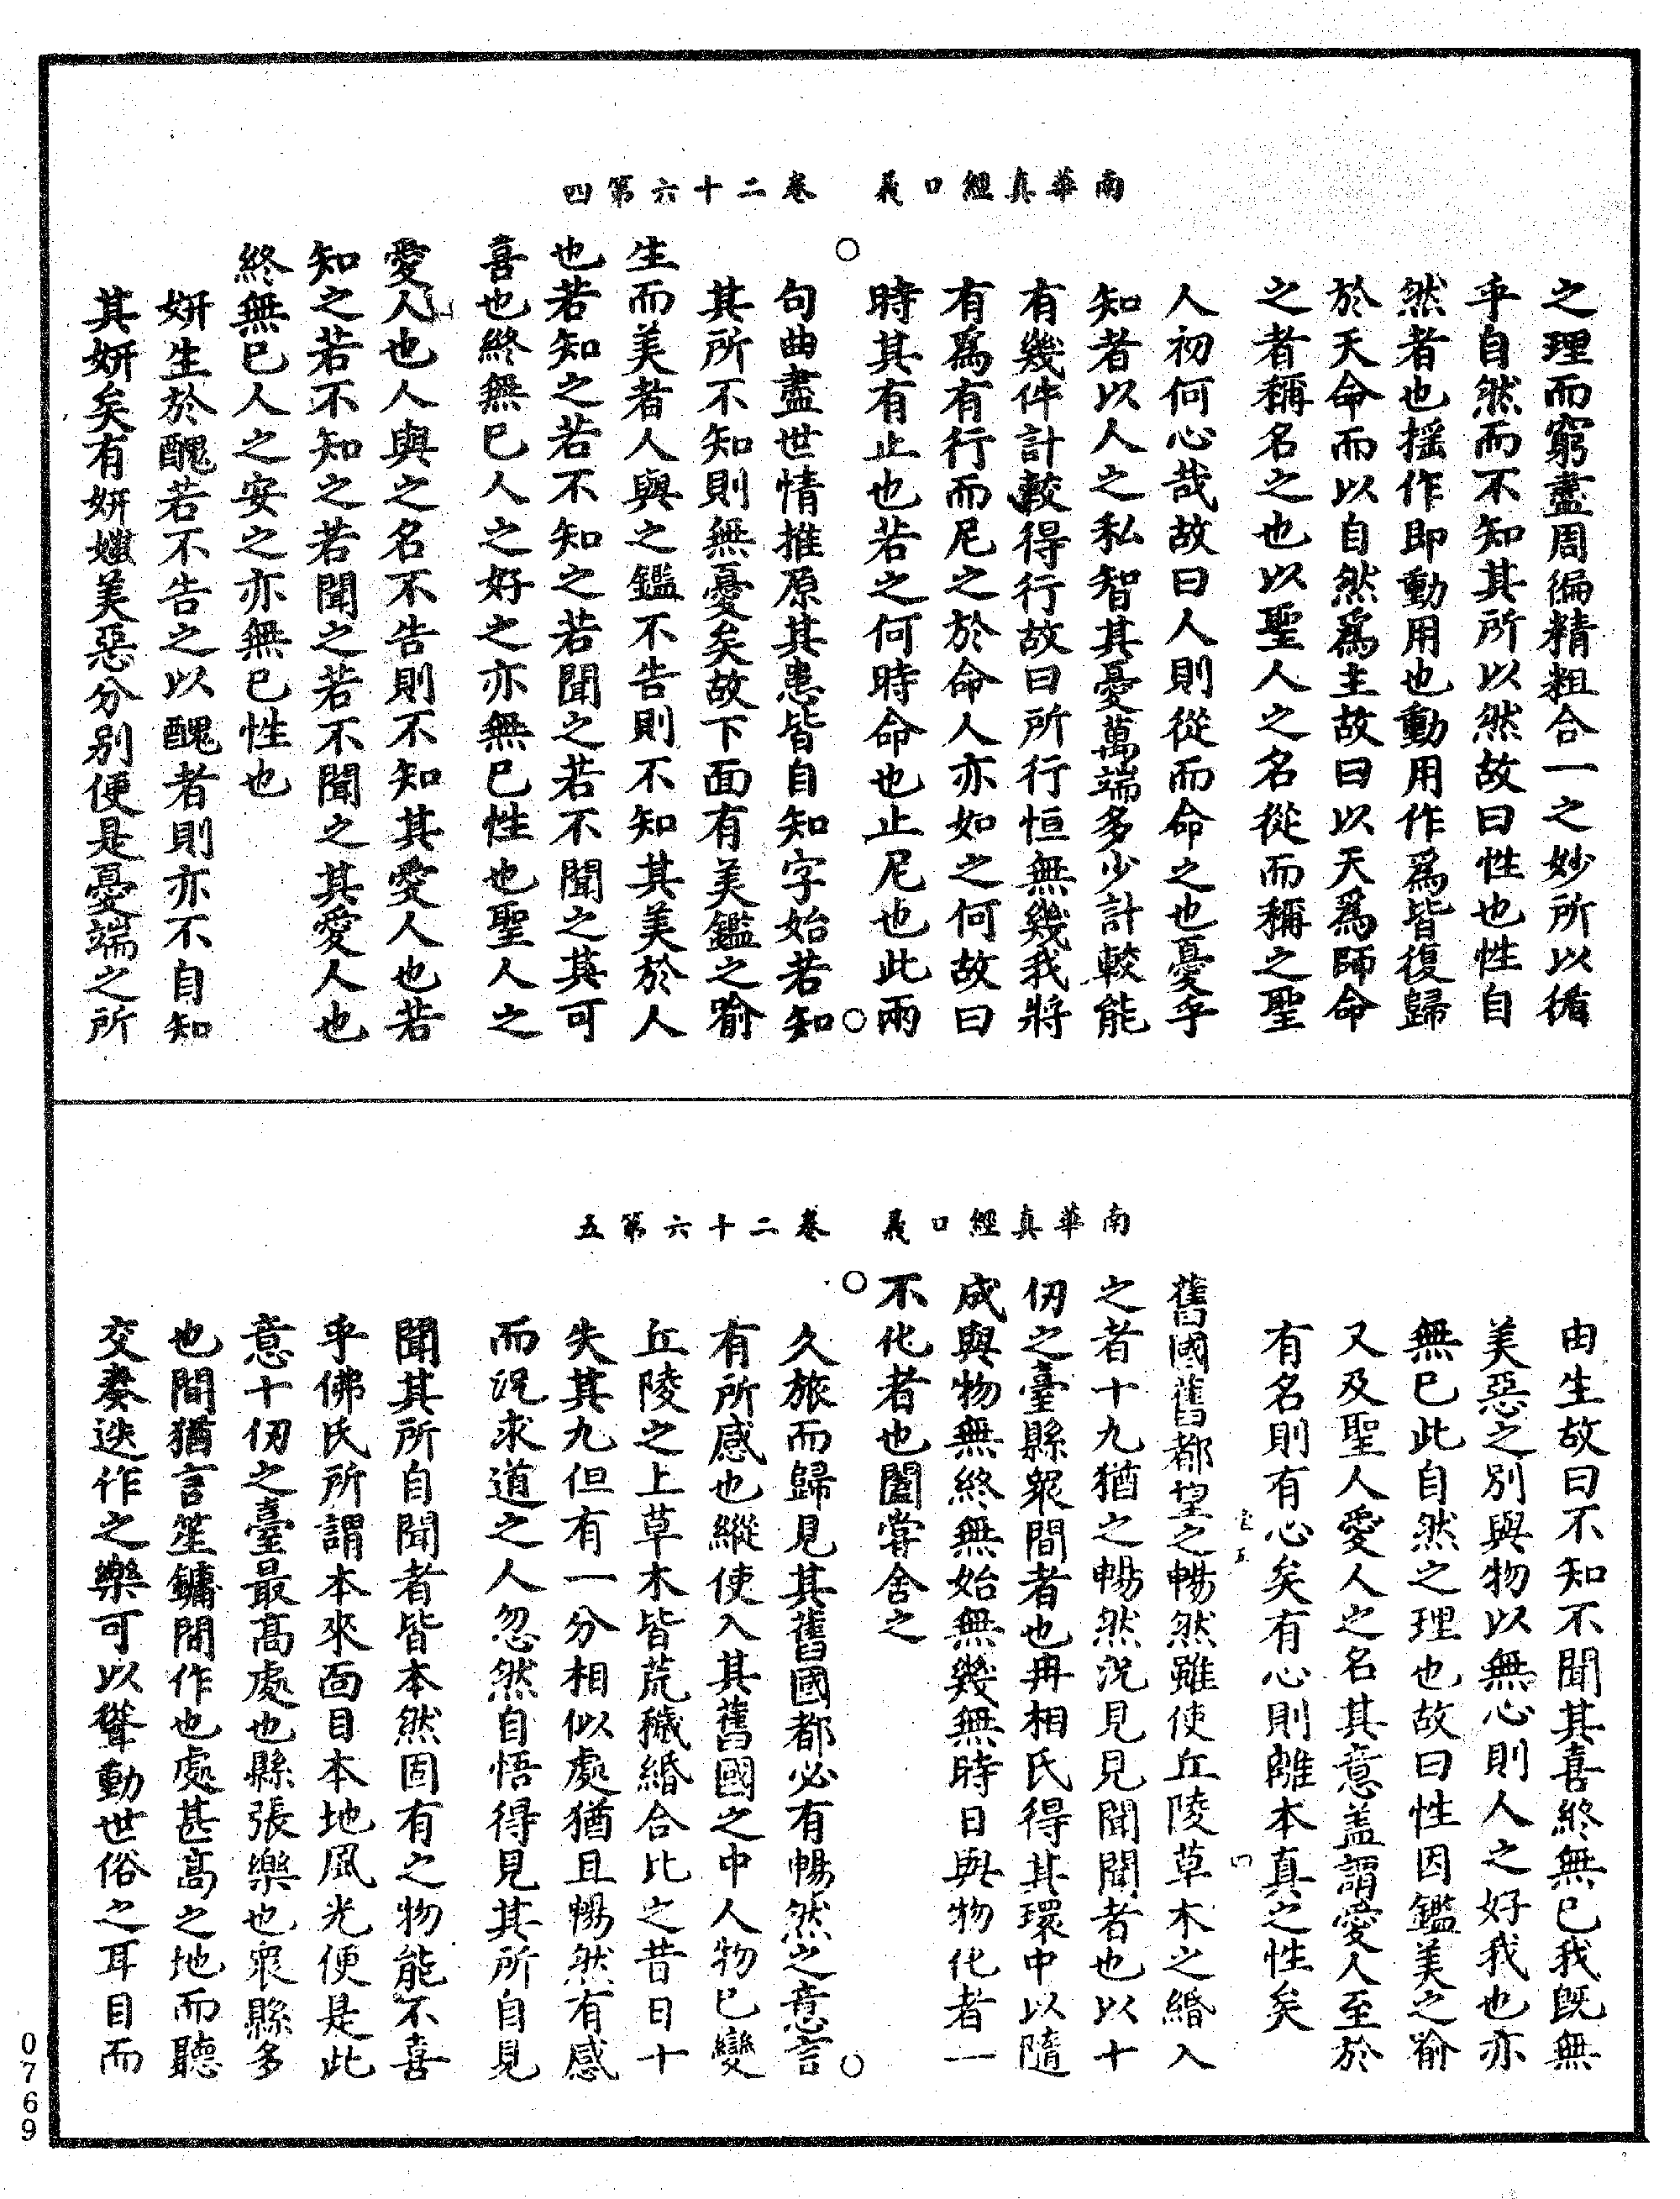 南華真經口義　卷二十六第四
之理而窮盡周徧精粗合一之妙所以循
乎自然而不知其所以然故曰性也性自
然者也揺作即動用也動用作爲皆復歸
於天命而以自然爲主故曰以天爲師命
之者稱名之也以聖人之名從而稱之聖
人初何心哉故曰人則從而命之也憂乎
知者以人之私智其憂萬端多少計較能
有幾件計較得行故曰所行恒無幾我將
有爲有行而尼之於命人亦如之何故曰
時其有止也若之何時命也止尼也此兩
句曲盡世情推原其患皆自知字始若知
其所不知則無憂矣故下面有美鑑之喻
生而美者人與之鑑不告則不知其美於人
也若知之若不知之若聞之若不聞之其可
喜也終無已人之好之亦無已性也聖人之
愛人也人與之名不告則不知其愛人也若
知之若不知之若聞之若不聞之其愛人也
終無已人之安之亦無已性也
妍生於醜若不告之以醜者則亦不自知
其妍矣有妍媸美惡分別便是憂端之所
南華真經口義　卷二十六第五
由生故曰不知不聞其喜終無已我旣無
美惡之別與物以無心則人之好我也亦
無已此自然之理也故曰性因鑑美之喻
又及聖人愛人之名其意盖謂愛人至於
有名則有心矣有心則離本真之性矣
舊國舊都望之暢然雖使丘陵草木之緡入
之者十九猶之暢然況見見聞聞者也以十
仞之臺縣衆間者也冉相氏得其環中以隨
成與物無終無始無幾無時日與物化者一
不化者也闔嘗舍之
久旅而歸見其舊國都必有暢然之意言
有所感也縱使入其舊國之中人物已變
丘陵之上草木皆荒穢緡合比之昔日十
失其九但有一分相似處猶且暢然有感
而況求道之人忽然自悟得見其所自見
聞其所自聞者皆本然固有之物能不喜
乎佛氏所謂本來面目本地風光便是此
意十仞之臺最髙處也縣張樂也衆縣多
也間猶言笙鏞間作也處甚髙之地而聽
交奏迭作之樂可以聳動世俗之耳目而
0769